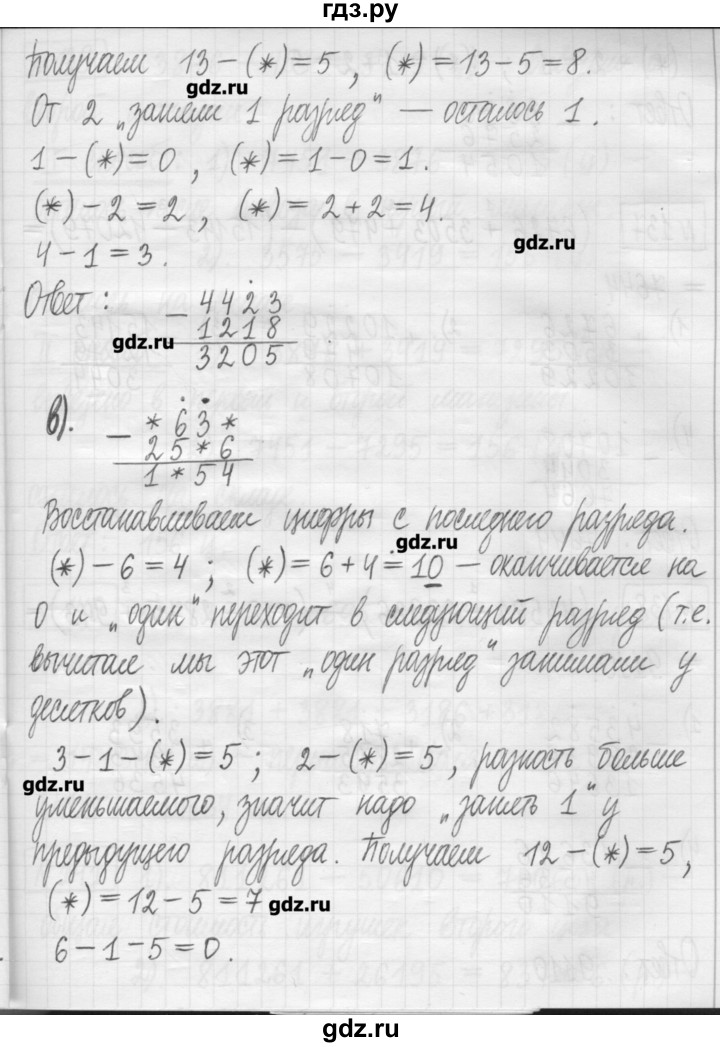 гдз.ру
Получаем 13 – (*) = 5, (*) = 13 – 5 = 8.
gdz.ru
От 2 „заняли 1 разряд“ — осталось 1.
1 – (*) = 0, (*) = 1 – 0 = 1.
(*) – 2 = 2, (*) = 2 + 2 = 4.
gdz.ru
4 – 1 = 3.
Ответ: – 4423
1218
gdz.ru
3205
в). – *63*
25*6
1*54
Восстанавливаем цифры с последнего разряда.
gdz.ru
(*) – 6 = 4; (*) = 6 + 4 = 10 – оканчивается на
0 и „один“ переходит в следующий разряд (т.е.
вычитая мы этот „один разряд“ занимали у
десятков).
3 – 1 – (*) = 5; 2 – (*) = 5, разность больше
gdz.ru
уменьшаемого, значит надо „занять 1“ у
предыдущего разряда. Получаем 12 – (*) = 5,
(*) = 12 – 5 = 7
gdz.ru
6 – 1 – 5 = 0.
gdz.ru